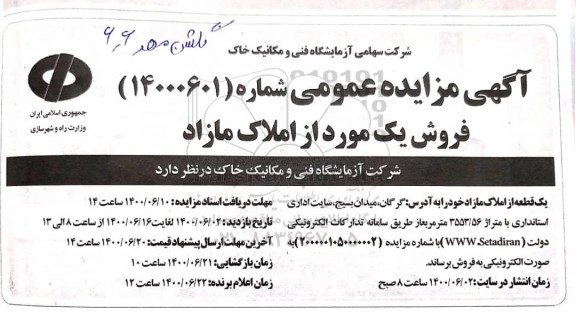 گلشن مهر ۶,۶
شرکت سهامی آزمایشگاه فنی و مکانیک خاک
آگهی مزایده عمومی شماره (۱۴۰۰۰۶۰۱)
فروش یک مورد از املاک مازاد
جمهوری اسلامی ایران
وزارت راه و شهرسازی
شرکت آزمایشگاه فنی و مکانیک خاک در نظر دارد
یک قطعه از املاک مازاد خود را به آدرس: گرگان، میدان بسیج، سایت اداری
استانداری با متراژ ۳۵۵۳/۵۶ مترمربع از طریق سامانه تدارکات الکترونیکی
دولت (WWW.Setadiran) با شماره مزایده (۲۰۰۰۰۰۱۰۵۰۰۰۰۰۰۲) به
صورت الکترونیکی به فروش برساند.
زمان انتشار در سایت: ۱۴۰۰/۰۶/۰۲ ساعت ۸ صبح
مهلت دریافت اسناد مزایده: ۱۴۰۰/۰۶/۱۰ ساعت ۱۴
تاریخ بازدید: ۱۴۰۰/۰۶/۰۲ لغایت ۱۴۰۰/۰۶/۱۶ از ساعت ۸ الی ۱۳
آخرین مهلت ارسال پیشنهاد قیمت: ۱۴۰۰/۰۶/۲۰ ساعت ۱۴
زمان بازگشایی: ۱۴۰۰/۰۶/۲۱ ساعت ۱۰
زمان اعلام برنده: ۱۴۰۰/۰۶/۲۲ ساعت ۱۲